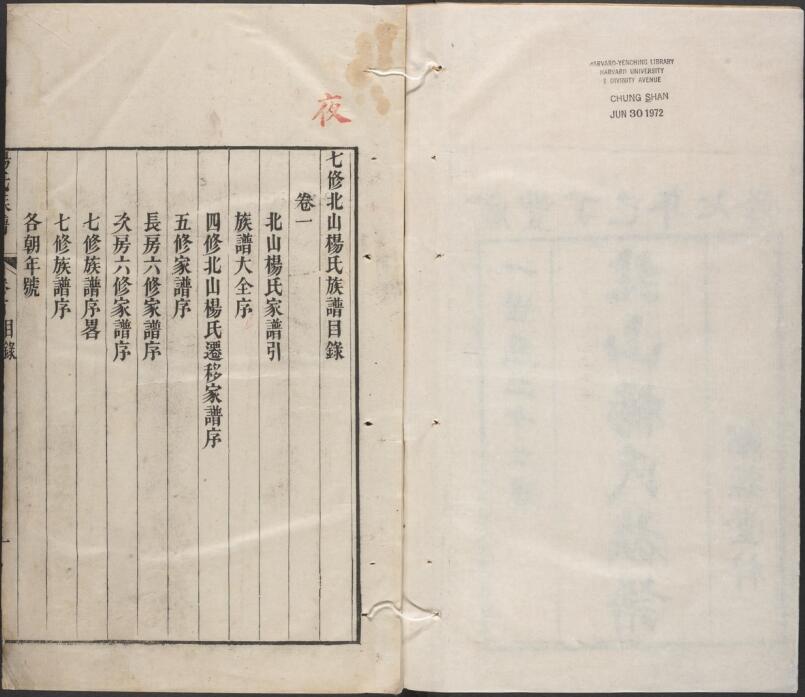 HARVARD-YENCHING LIBRARY
HARVARD UNIVERSITY
2 DIVINITY AVENUE
CHUNG SHAN
JUN 30 1972
夜
七修北山楊氏族譜目錄
卷一
北山楊氏家譜引
族譜大全序
四修北山楊氏遷移家譜序
五修家譜序
長房六修家譜序
次房六修家譜序
七修族譜序畧
七修族譜序
各朝年號
楊氏族譜
目錄
一